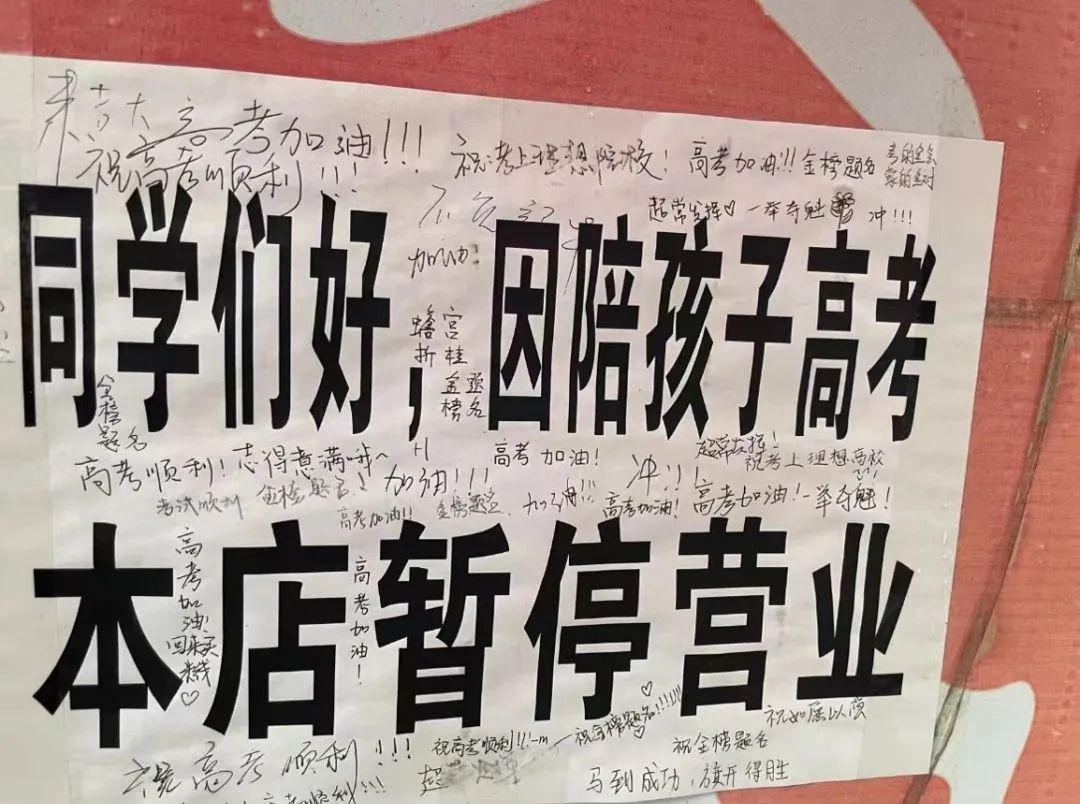 来吉大
高考加油!!!
祝高考顺利!!!
祝考上理想院校!
高考加油!!!
金榜题名
考的全会
蒙的全对
超常发挥♡
一举夺魁
冲!!!
加油!
同学们好，因陪孩子高考
蟾宫
折桂
金榜题名
金榜题名
高考顺利!
志得意满哦~
高考加油!
冲!!!
超常发挥!
祝考上理想高校
考试顺利
金榜题名!
加油!!!
高考加油!!
金榜题名
加油!!!
高考加油!
高考加油!
一举夺魁!
本店暂停营业
高考加油!
回来买米线♡
高考加油!
祝高考顺利!!!
高考顺利!!!
祝高考顺利!!!
祝金榜题名!!!!!!♡
祝如愿以偿
祝金榜题名
马到成功，旗开得胜